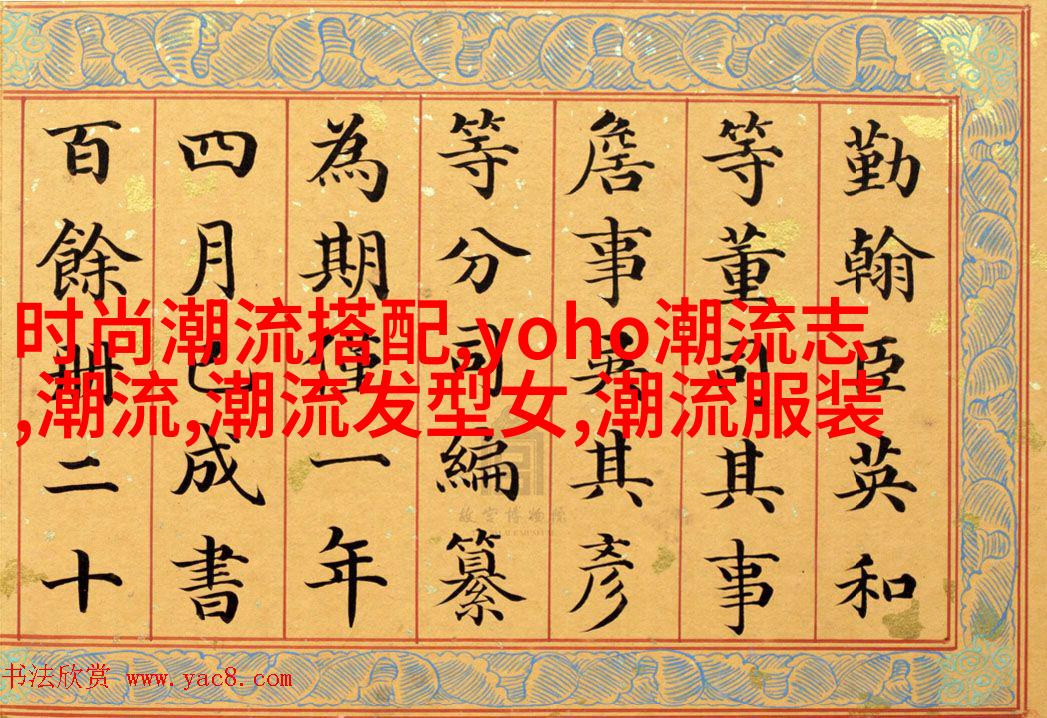 勤翰臣英和
等董司其事
詹事吳其彥
等分司編纂
為期僅一年
四月已成書
百餘冊二十
时尚潮流搭配,yoho潮流志
,潮流,潮流发型女,潮流服装
故宫博物院
书法欣赏 www.yac8.com